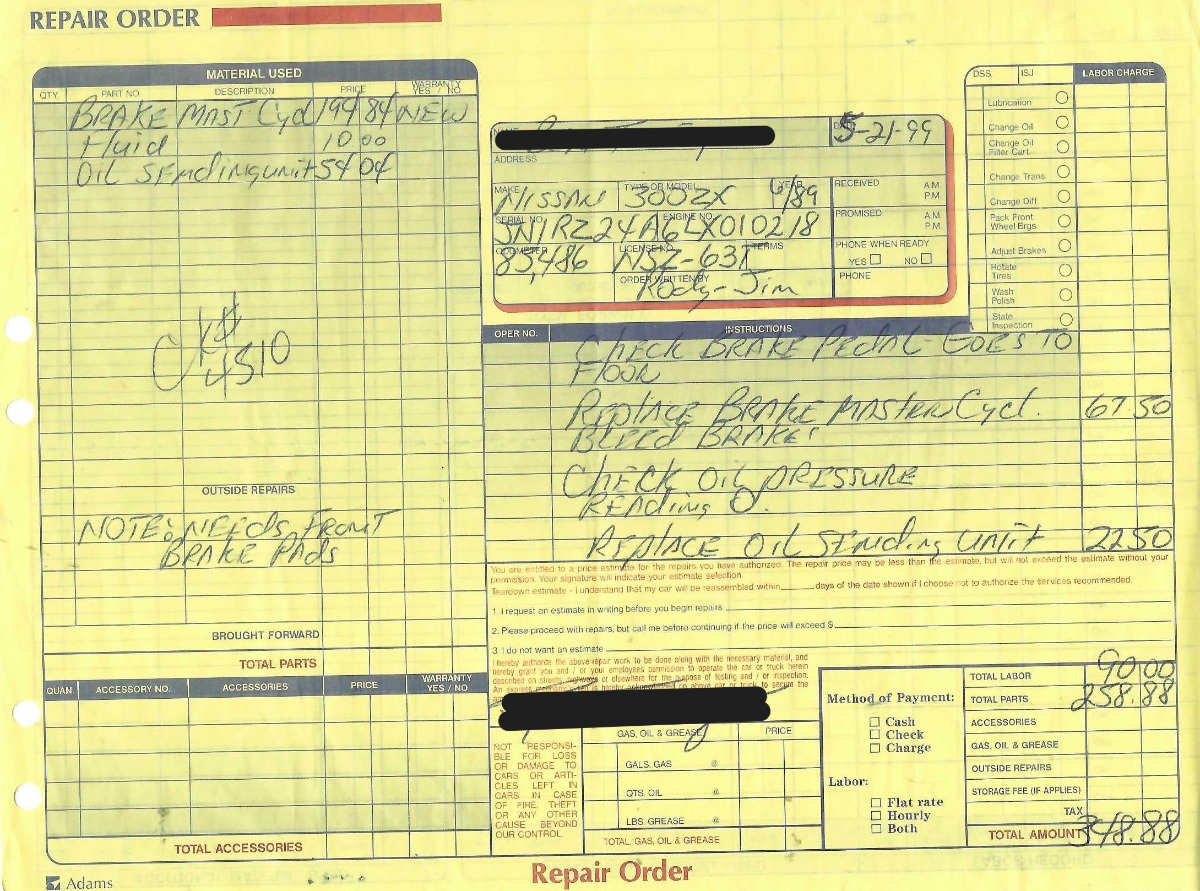 REPAIR ORDER
MATERIAL USED
QTY. PART NO. DESCRIPTION PRICE WARRANTY YES / NO
BRAKE MAST Cycl 194 84 NEW
Fluid 10 00
OIL SENdingunit 54 04
CK#
4510
OUTSIDE REPAIRS
NOTE: NEEDS FRONT
BRAKE PADS
BROUGHT FORWARD
TOTAL PARTS
QUAN. ACCESSORY NO. ACCESSORIES PRICE WARRANTY YES / NO
TOTAL ACCESSORIES
Adams
NAME DATE 5-21-99
ADDRESS
MAKE NISSAN TYPE OR MODEL 300ZX YEAR 6/89
RECEIVED A.M. P.M.
SERIAL NO. JN1RZ24A6LX010218 ENGINE NO.
PROMISED A.M. P.M.
ODOMETER 83,486 LICENSE NO. NSZ-63T TERMS
PHONE WHEN READY
YES NO
ORDER WRITTEN BY Rody-Jim
PHONE
DSS. ISJ LABOR CHARGE
Lubrication
Change Oil
Change Oil
Filter Cart.
Change Trans.
Change Diff.
Pack Front
Wheel Brgs.
Adjust Brakes
Rotate
Tires
Wash
Polish
State
Inspection
OPER NO. INSTRUCTIONS
CHECK BRAKE PEDAL-GOES TO
FLOOR
REPLACE BRAKE MASTER Cycl. 67 50
BLEED BRAKES
CHECK OIL PRESSURE
READing O.
REPLACE OIL SENding UNIT 22 50
You are entitled to a price estimate for the repairs you have authorized. The repair price may be less than the estimate, but will not exceed the estimate without your
permission. Your signature will indicate your estimate selection.
Teardown estimate - I understand that my car will be reassembled within ______ days of the date shown if I choose not to authorize the services recommended.
1. I request an estimate in writing before you begin repairs.
2. Please proceed with repairs, but call me before continuing if the price will exceed $
3. I do not want an estimate
I hereby authorize the above repair work to be done along with the necessary material, and
hereby grant you and / or your employees permission to operate the car or truck herein
described on streets, highways or elsewhere for the purpose of testing and / or inspection.
An express mechanic's lien is hereby acknowledged on above car or truck to secure the
NOT RESPONSI-
BLE FOR LOSS
OR DAMAGE TO
CARS OR ARTI-
CLES LEFT IN
CARS IN CASE
OF FIRE, THEFT
OR ANY OTHER
CAUSE BEYOND
OUR CONTROL.
GAS, OIL & GREASE PRICE
GALS. GAS @
QTS. OIL @
LBS. GREASE @
TOTAL, GAS, OIL & GREASE
Method of Payment:
Cash
Check
Charge
Labor:
Flat rate
Hourly
Both
TOTAL LABOR 90.00
TOTAL PARTS 258.88
ACCESSORIES
GAS, OIL & GREASE
OUTSIDE REPAIRS
STORAGE FEE (IF APPLIES)
TAX
TOTAL AMOUNT 348.88
Repair Order